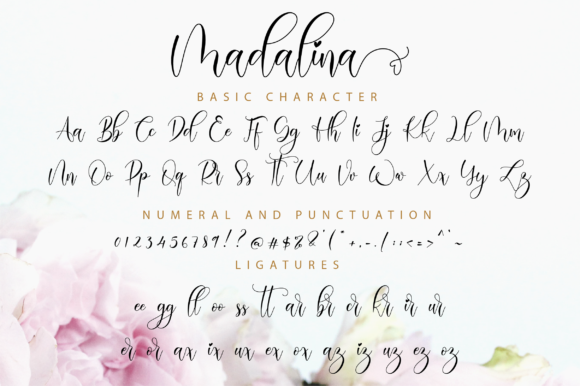 Madalina
BASIC CHARACTER
Aa Bb Cc Dd Ee Ff Gg Hh Ii Jj Kk Ll Mm
Nn Oo Pp Qq Rr Ss Tt Uu Vv Ww Xx Yy Zz
NUMERAL AND PUNCTUATION
0123456789!?@#$%&'("+,-./:;<=>^`~
LIGATURES
ee gg ll oo ss tt ar br cr kr ir ur
er or ax ix ux ex ox az iz uz ez oz